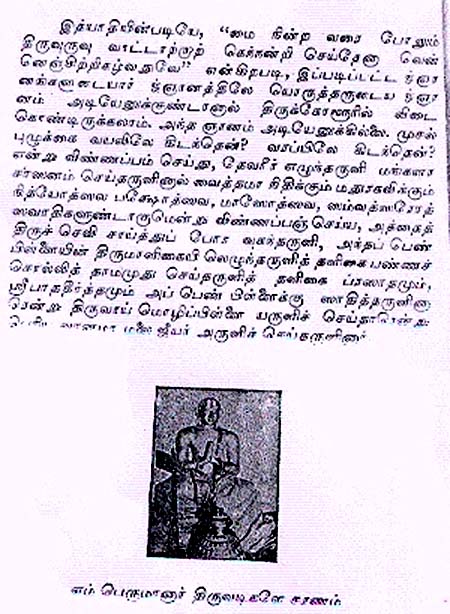 இத்யாதியின்படியே, “மை நின்ற வரை போலும்
திருவுருவு வாட்டாற்றாற் கெந்நன்றி செய்தேனு வென்
னெஞ்சிற்றிகழ்வதுவே” என்கிறபடி, இப்படிப்பட்ட ஞான
ங்களுடையார் ஞானத்திலே யொருத்தருடைய ஞா
னம் அடியேனுக்குண்டானால் திருக்கோளூரில் விடை
கொண்டிருக்கலாம். அந்த ஞானம் அடியேனுக்கில்லை. முசல்
புழுக்கை வயலிலே கிடந்தென்? வரப்பிலே கிடந்தென்?
என்று விண்ணப்பம் செய்து, தேவரீர் எழுந்தருளி மங்களா
சாஸனம் செய்தருளினால் வைத்தமா நிதிக்கும் மதுரகவிக்கும்
நித்யோத்ஸவ பக்ஷோத்ஸவ, மாஸோத்ஸவ, ஸம்வத்ஸரோத்
ஸவாதிகளுண்டாருமென்று விண்ணப்பஞ் செய்ய, அத்தைத்
திருச் செவி சாய்த்துப் போர வுகந்தருளி, அந்தப் பெண்
பிள்ளையின் திருமாளிகையி லெழுந்தருளித் தளிகை பண்ணச்
சொல்லித் தாமமுது செய்தருளித் தளிகை ப்ரஸாதமும்,
ஸ்ரீபாததீர்த்தமும் அப் பெண் பிள்ளைக்கு ஸாதித்தருளினா
ரென்று திருவாய் மொழிப்பிள்ளை யருளிச் செய்தாரென்று
வானமா மலை ஜீயர் அருளிச் செய்தருளினார்
எம் பெருமானார் திருவடிகளே சரணம்